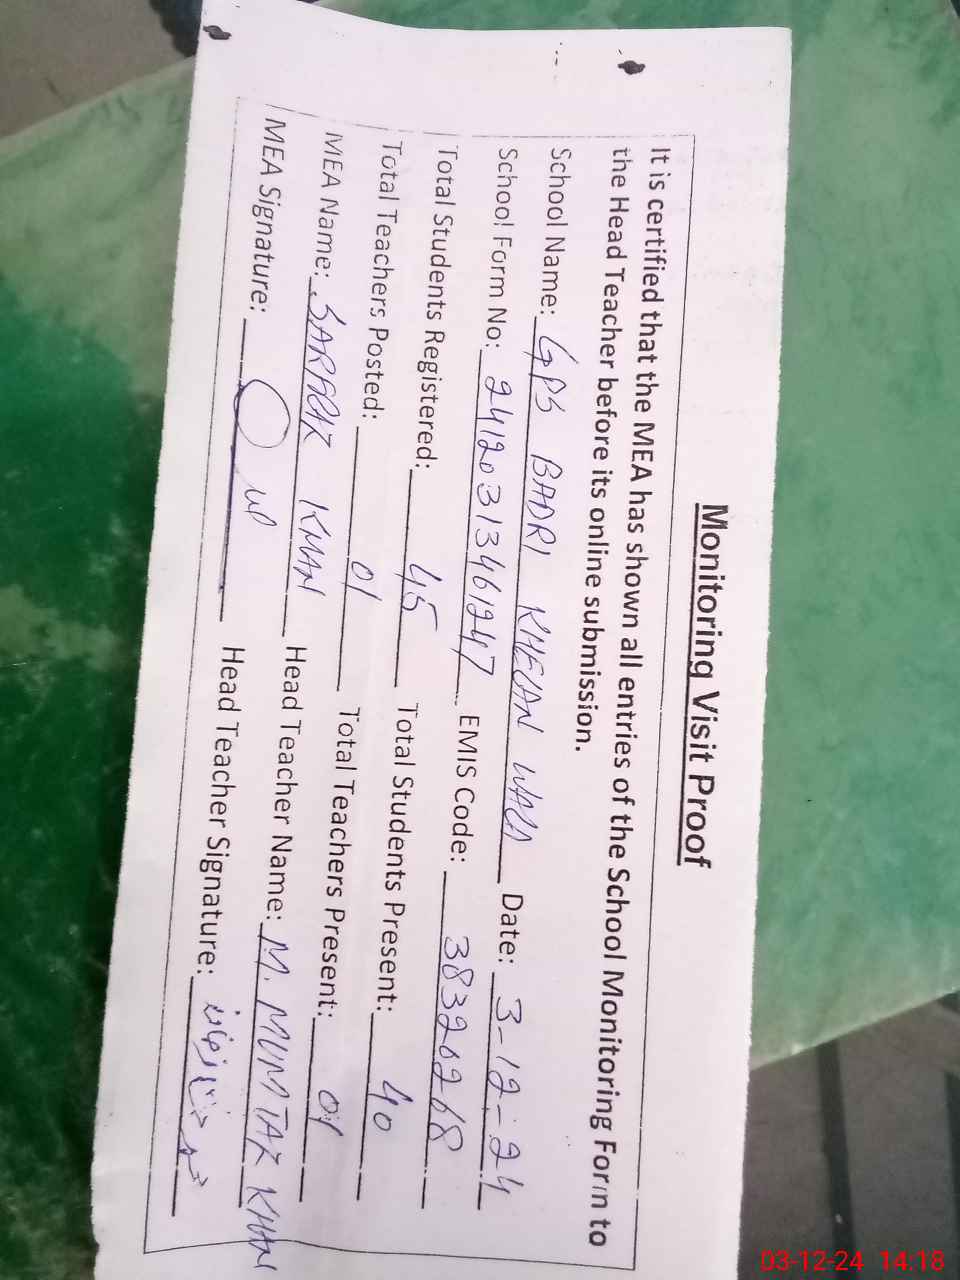 Monitoring Visit Proof
It is certified that the MEA has shown all entries of the School Monitoring Form to
the Head Teacher before its online submission.
School Name: GPS BADRI KHELAN WALA Date: 3-12-24
School Form No: 24120313461247 EMIS Code: 38320268
Total Students Registered: 45 Total Students Present: 40
Total Teachers Posted: 01 Total Teachers Present: 01
MEA Name: KHAN Head Teacher Name: M. MUMTAZ KHAN
MEA Signature: Head Teacher Signature:
03-12-24 14:18